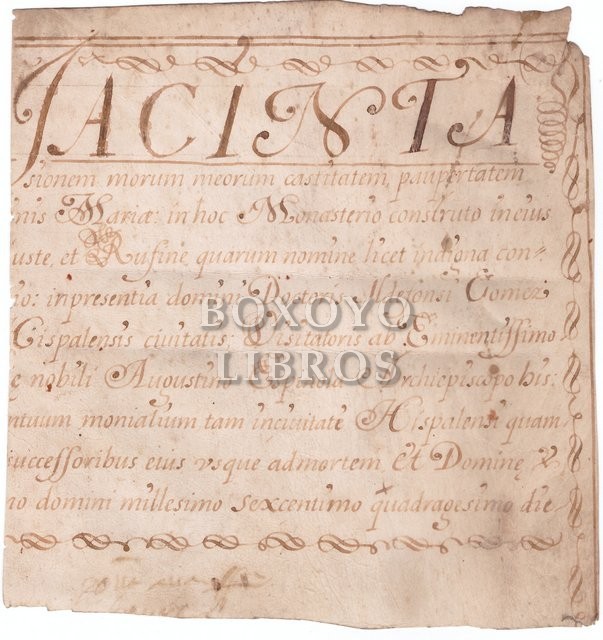 JACINTA
sionem morum meorum castitatem, paupertatem
nis Mariæ: in hoc Monasterio construto incius
uste, et Rufine quarum nomine licet indigna con=
io: inpresentia domini Doctoris Ildefonsi Gomez
Cispalensis ciuitatis; Visitatoris ab Eminentissimo
e nobili Augustin Archiepiscopo his:
ntuum monialium tam inciuitate Hispalensi quam
successoribus eius vsque admortem, et Domine
no domini millesimo sexcentimo quadragesimo die
BOXOYO
LIBROS